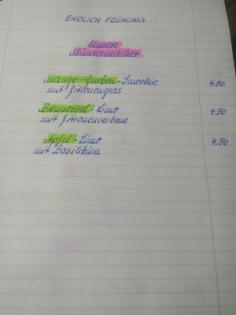 ENDLICH FRÜHLING...
Unsere
Muntermacher
Mango-Gurken-Smoothie 4.50
mit Zitronengras
Brennessel-Limo 4.50
mit Zitronenverbene
Apfel-Limo 4.50
mit Basilikum